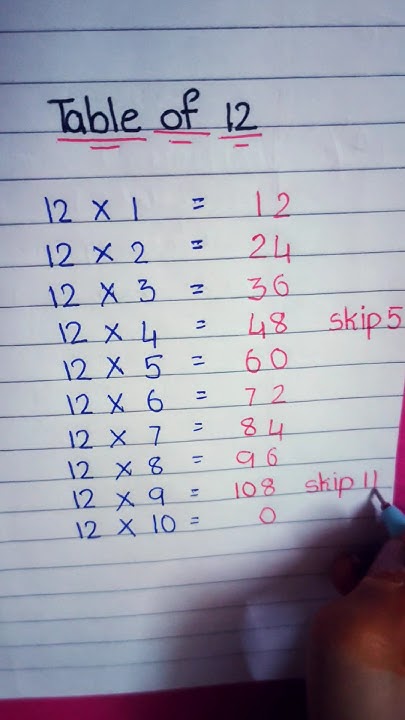 Table of 12
12 X 1 = 12
12 X 2 = 24
12 X 3 = 36
12 X 4 = 48 skip 5
12 X 5 = 60
12 X 6 = 72
12 X 7 = 84
12 X 8 = 96
12 X 9 = 108 skip 11
12 X 10 = 0